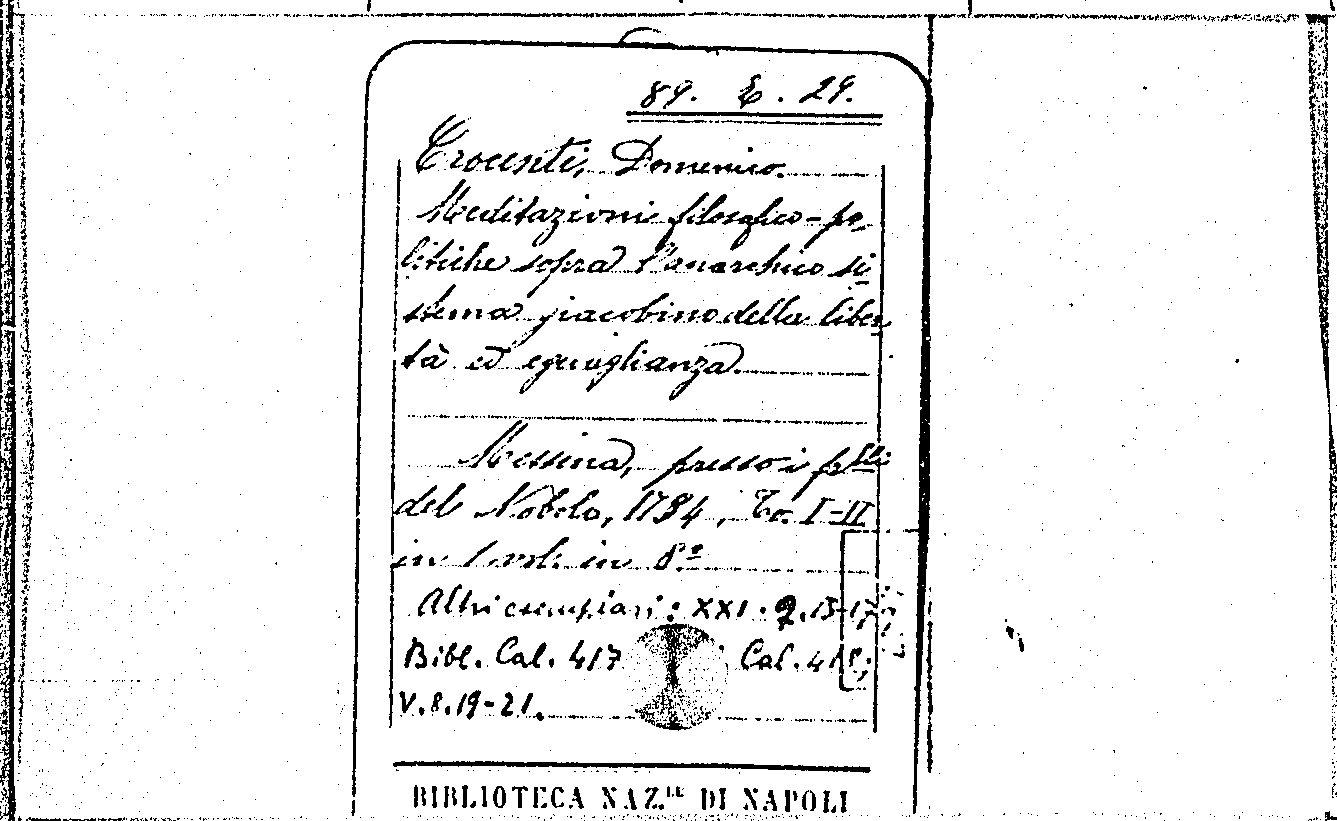 89. E. 29.
Crocenti, Domenico.
Meditazioni filosofico-po-
litiche sopra l'anarchico si-
stema giacobino della liber-
tà ed eguaglianza.
Messina, presso i f.lli
del Nobolo, 1794, To. I-II
in 1 vol. in 8.º
Altri esemplari: XXI. Q. 15-17;
Bibl. Cal. 417 Cal. 418;
V.8.19-21.
BIBLIOTECA NAZ.LE DI NAPOLI